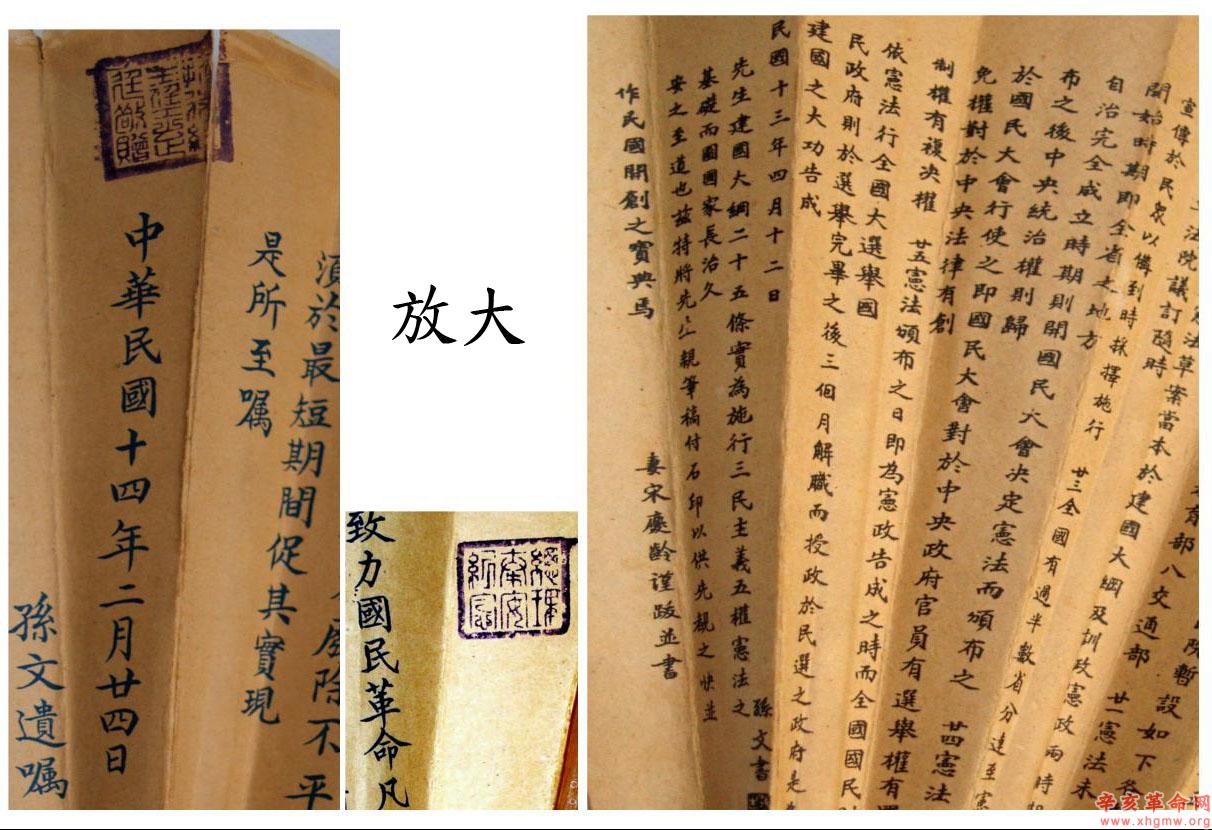 廢除不平
須於最短期間促其實現
是所至囑
中華民國十四年二月廿四日
孫文遺囑
放大
總理奉安紀念
致力國民革命凡
院暫設如下各
育部八交通部 廿一憲法未
法草案當本於建國大綱及訓政憲政兩時期
立法院議訂隨時
宣傳於民眾以備到時採擇施行 廿三全國有過半數省分達至憲
開始時期即全省之地方
自治完全成立時期則開國民大會決定憲法而頒布之 廿四憲法
布之後中央統治權則歸
於國民大會行使之即國民大會對於中央政府官員有選舉權有罷
免權對於中央法律有創
制權有複決權 廿五憲法頒布之日即為憲政告成之時而全國國民則
依憲法行全國大選舉國
民政府則於選舉完畢之後三個月解職而授政於民選之政府是為
建國之大功告成
民國十三年四月十二日 孫文書
先生建國大綱二十五條實為施行三民主義五權憲法之
基礎而圖國家長治久
安之至道也茲特將先生親筆稿付石印以供先覩之快並
作民國開創之寶典焉
妻宋慶齡謹跋並書
辛亥革命网
www.xhgmw.org